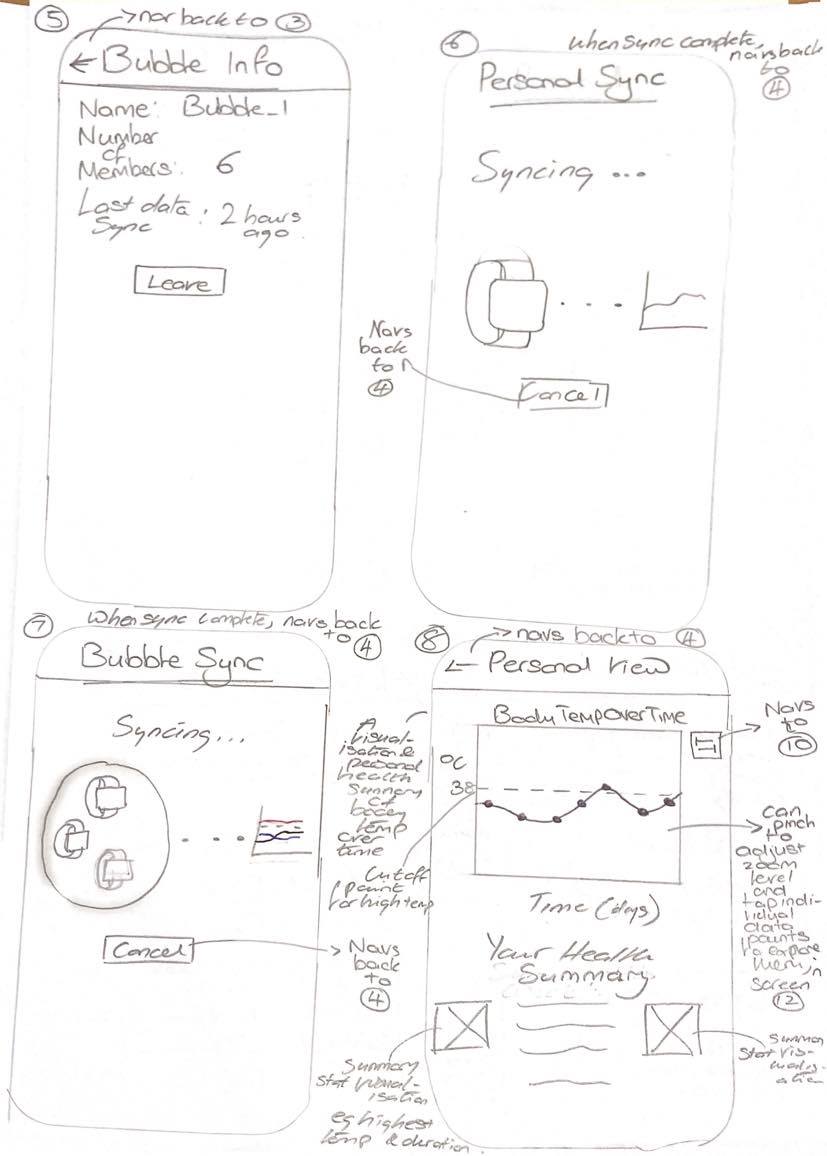 5
nav back to 3
← Bubble Info
Name: Bubble_1
Number
of
Members: 6
Last data : 2 hours
Sync ago
Leave
6
when sync complete,
navs back
to
4
Personal Sync
Syncing ...
Navs
back
to
4
Cancel
7
When sync complete, navs back
to 4
Bubble Sync
Syncing...
Cancel
Navs
back
to
4
8
navs back to 4
← Personal View
Body Temp Over Time
°C
38
Time (days)
Navs
to
10
A
visual-
isation &
personal
health
summary
of
body
temp
over
time
Cutoff
point
for high temp
can
pinch to
adjust
zoom
level
and
tap indi-
vidual
data
points
to explore
them in
screen
12
Your Health
Summary
Summary
stat visual-
isation
eg highest
temp & duration.
Summary
stat vis-
ualis-
ation